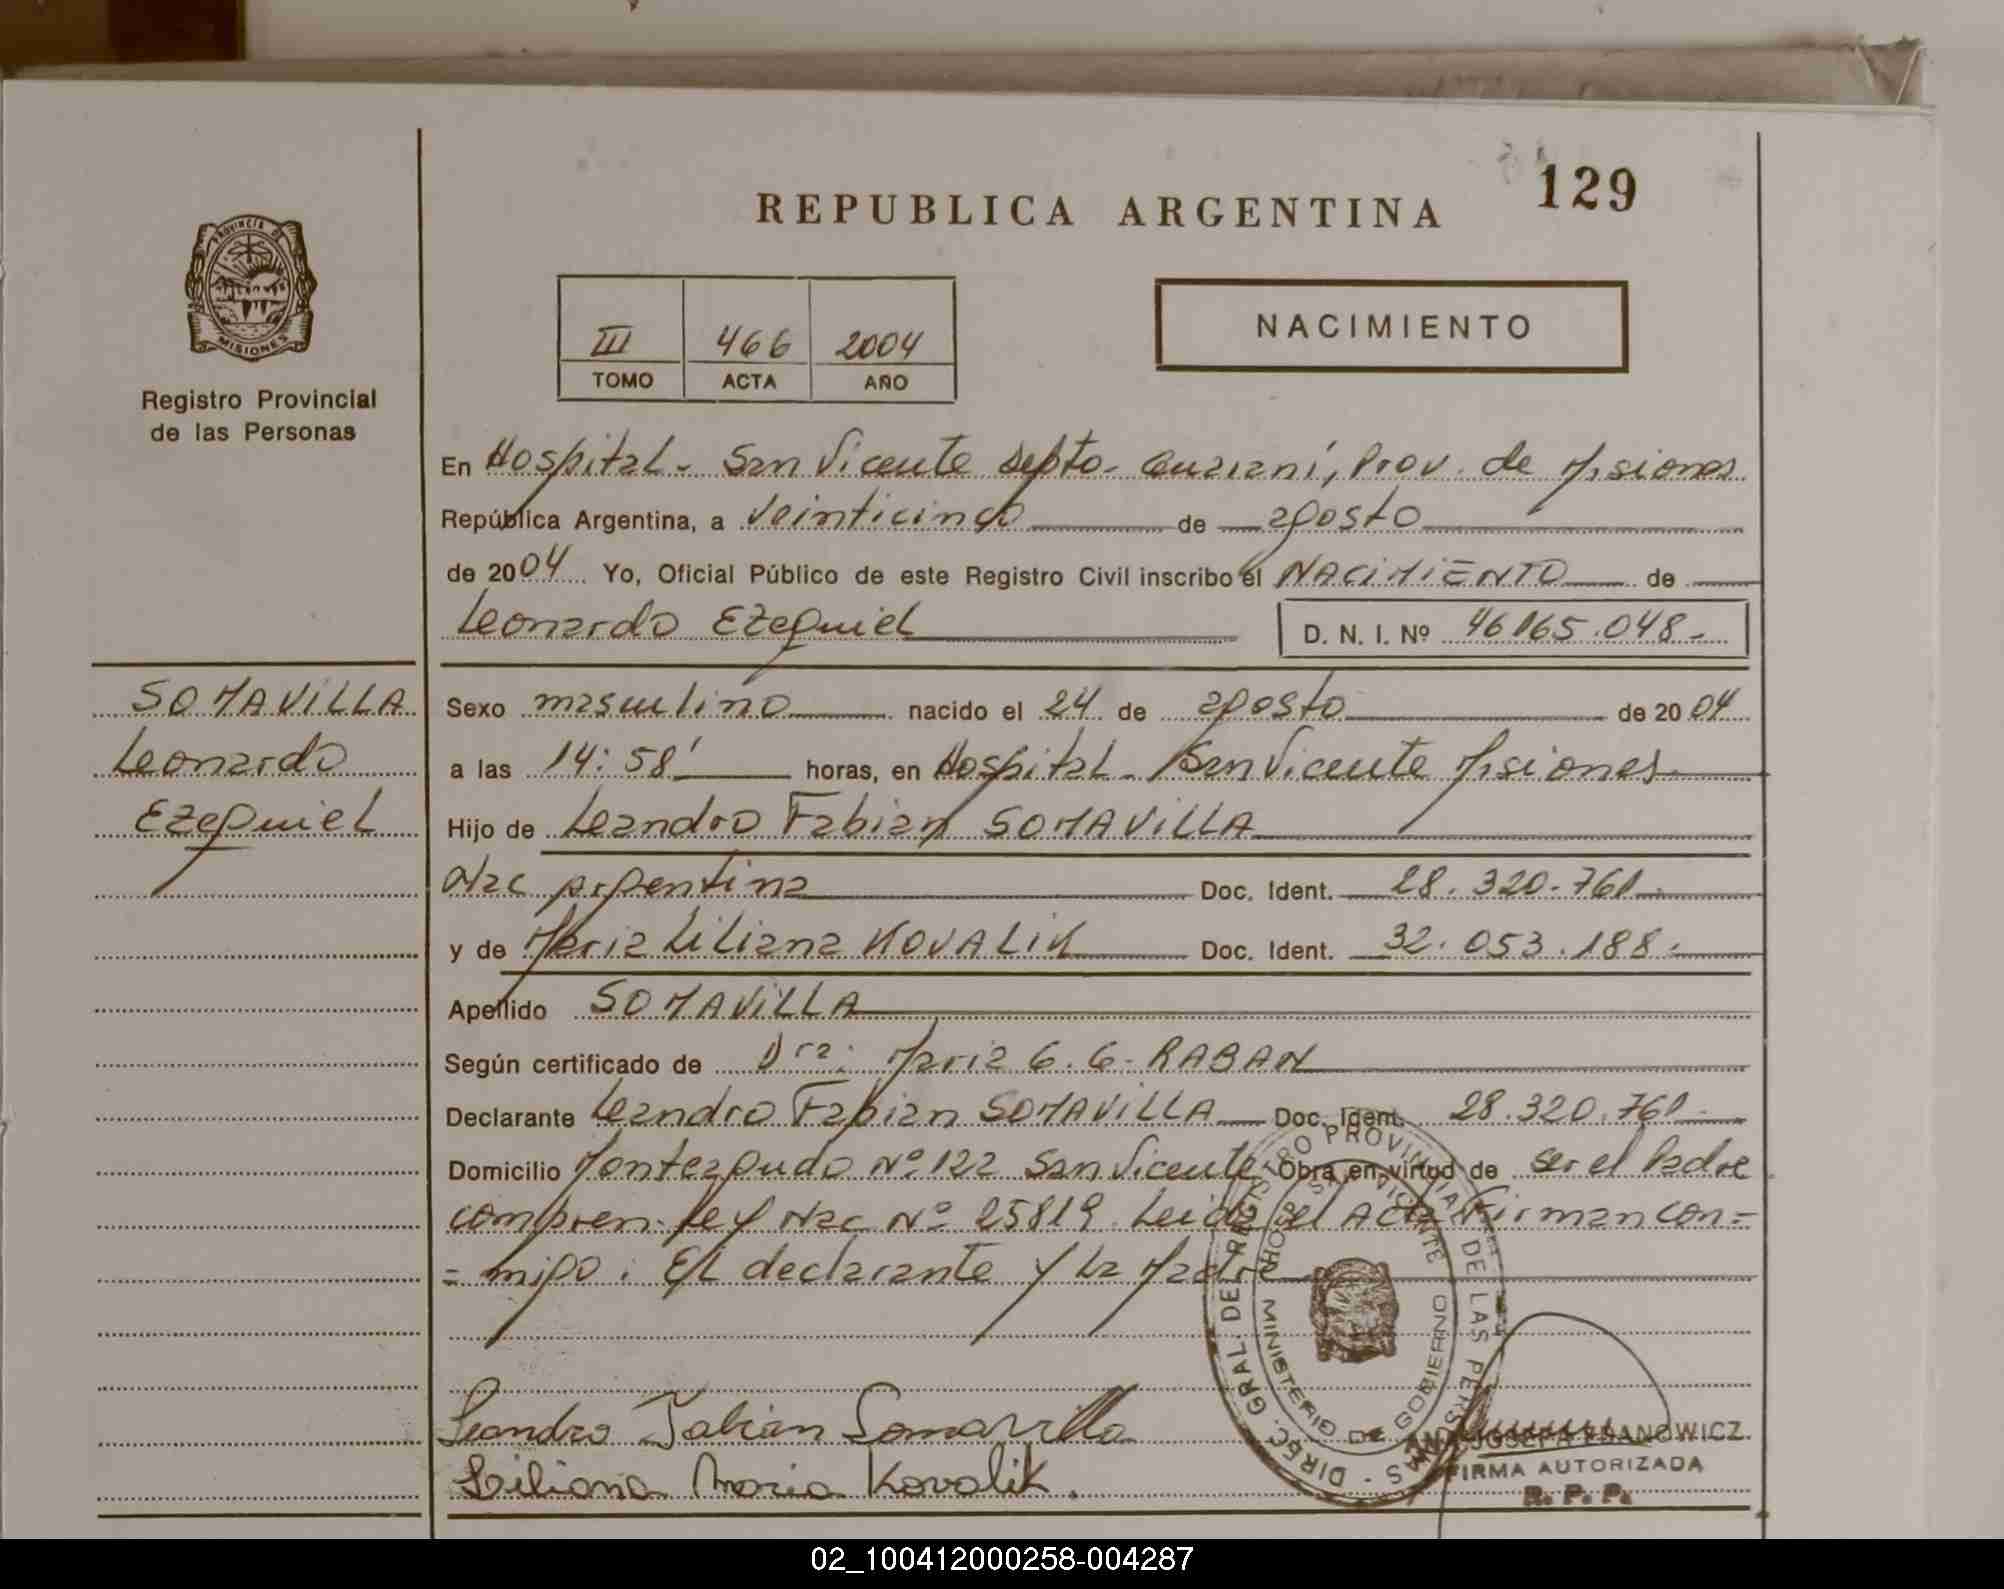 129
REPUBLICA ARGENTINA
PROVINCIA DE
MISIONES
Registro Provincial
de las Personas
III 466 2004
TOMO ACTA AÑO
NACIMIENTO
En Hospital - San Vicente Depto - Guaraní, Prov. de Misiones
República Argentina, a Veinticinco de agosto
de 2004 Yo, Oficial Público de este Registro Civil inscribo el NACIMIENTO de
Leonardo Ezequiel D. N. I. Nº 46165.048 -
SOMAVILLA
Leonardo
Ezequiel
Sexo masculino nacido el 24 de agosto de 2004
a las 14:58' horas, en Hospital - San Vicente Misiones
Hijo de Leandro Fabian SOMAVILLA
Nac Argentina Doc. Ident. 28.320.761 -
y de Maria Liliana KOVALIK Doc. Ident. 32.053.188 -
Apellido SOMAVILLA
Según certificado de Dra: Maria G. G. RABAN
Declarante Leandro Fabian SOMAVILLA Doc. Ident. 28.320.761 -
Domicilio Monteagudo Nº 122 San Vicente Obra en virtud de ser el Padre
compren. Ley Nac Nº 25819. Leida el Acta Firman con=
= migo: El declarante y La Madre
Leandro Fabian Somavilla
Liliana Maria Kovalik.
DIREC. GRAL. DE REGISTRO PROVINCIAL DE LAS PERSONAS -
HOSP. SAN VICENTE
MINISTERIO DE GOBIERNO
ANA JOSEFA
FIRMA AUTORIZADA
R. P. P.
02_100412000258-004287